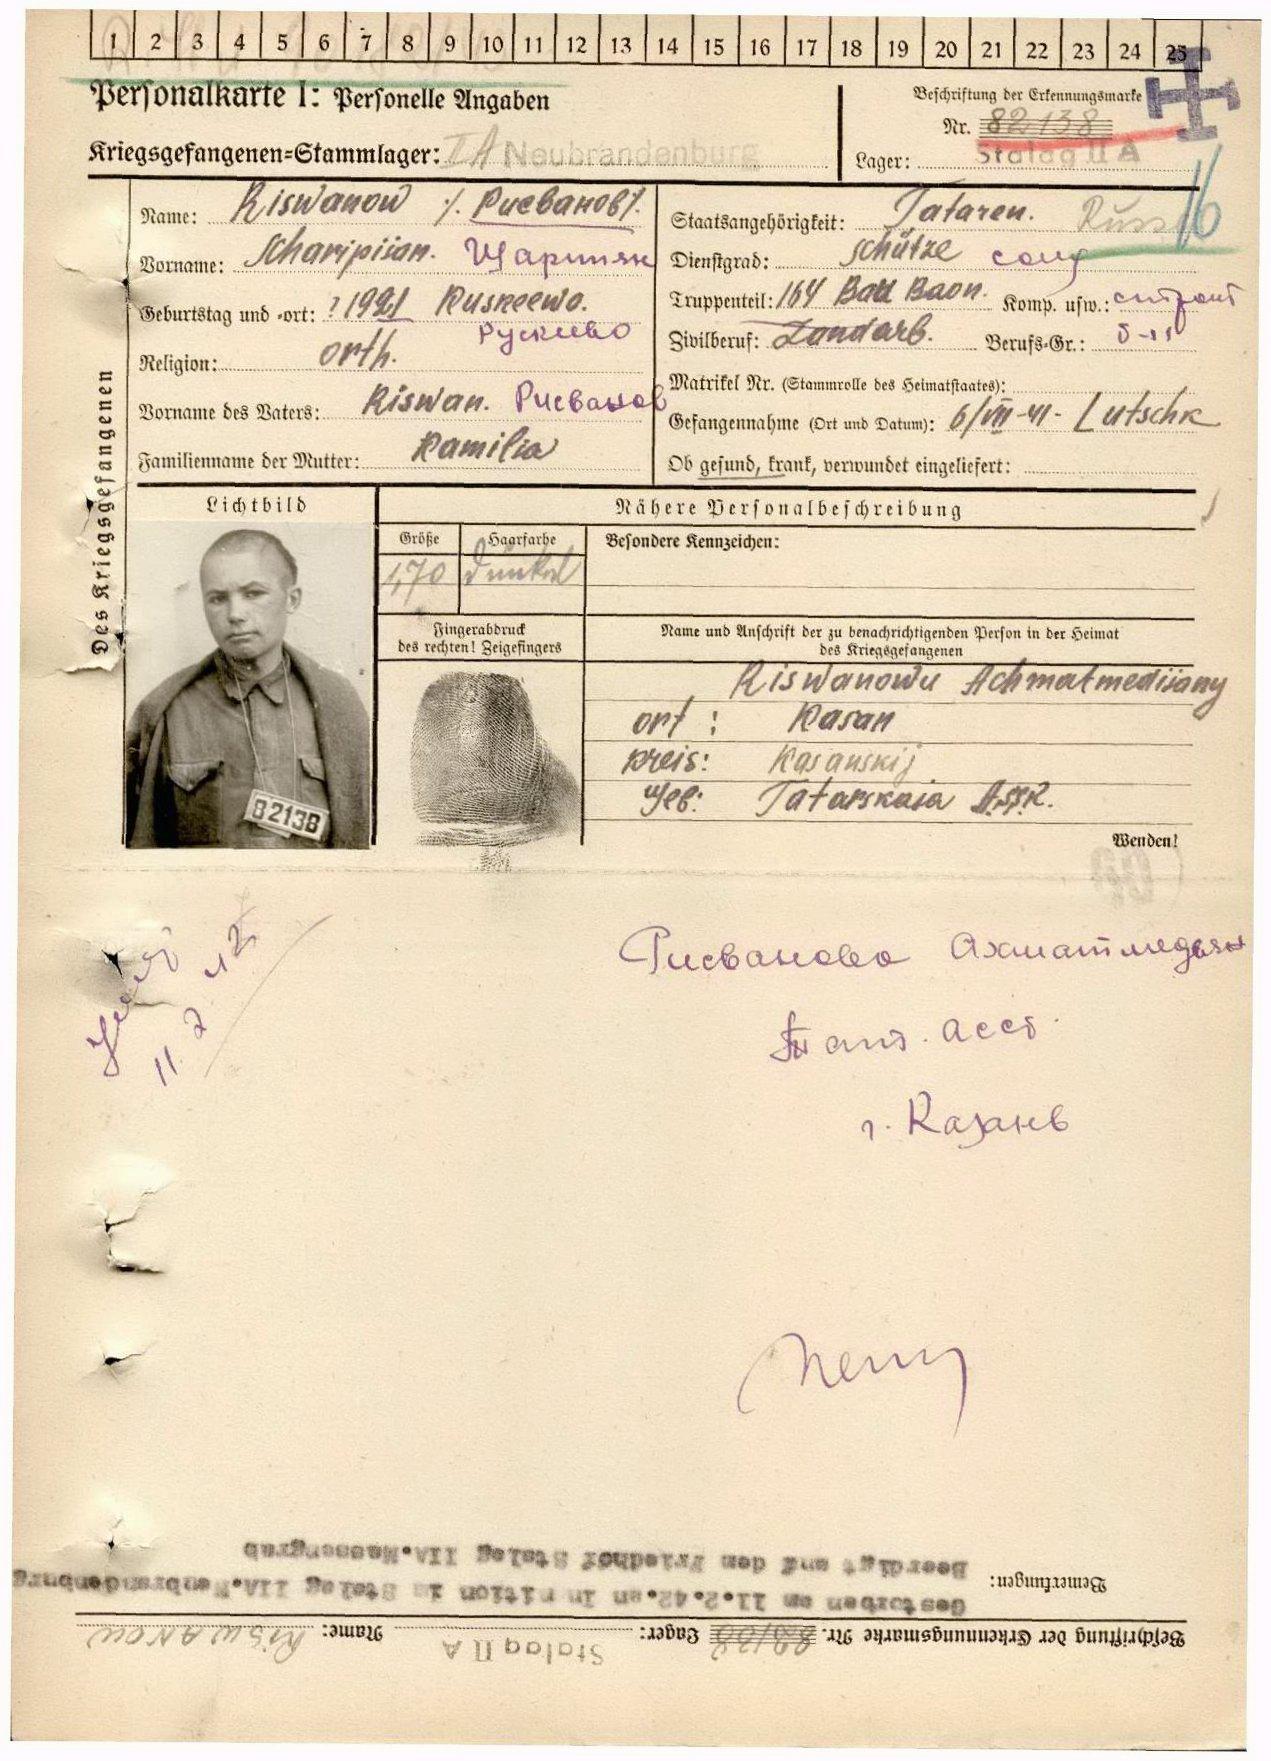 1 2 3 4 5 6 7 8 9 10 11 12 13 14 15 16 17 18 19 20 21 22 23 24 25
Personalkarte I: Personelle Angaben
Beschriftung der Erkennungsmarke
Nr. 82138
Kriegsgefangenen=Stammlager: II A Neubrandenburg
Lager: Stalag II A
16
Des Kriegsgefangenen
Name: Riswanow ⁒ Рисванов ⁒
Vorname: Scharipijan. Щарипян
Geburtstag und =ort: ? 1921 Ruskeewo.
Рускиво
Religion: orth.
Vorname des Vaters: Riswan. Рисванов
Familienname der Mutter: Ramilia
Staatsangehörigkeit: Tataren. Russ
Dienstgrad: Schütze
Truppenteil: 164 Batt Baon. Komp. usw.:
Zivilberuf: Landarb. Berufs=Gr.:
Matrikel Nr. (Stammrolle des Heimatstaates):
Gefangennahme (Ort und Datum): 6/VII-41- Lutschk
Ob gesund, krank, verwundet eingeliefert:
Lichtbild
82138
Nähere Personalbeschreibung
Größe Haarfarbe Besondere Kennzeichen:
1,70 dunkel
Fingerabdruck
des rechten! Zeigefingers
Name und Anschrift der zu benachrichtigenden Person in der Heimat
des Kriegsgefangenen
Riswanowu Achmatmedijany
ort : Kasan
Kreis: Kasanskij
Geb: Tatarskaia A.S.S.R.
Wenden!
Рисванова Ахматмедьян
Тат. асср.
г. Казань
11 2 42
Bemerkungen: Gestorben am 11.2.42.an in nition im Stalag IIA.Neubrandenburg
Beerdigt auf dem Friedhof Stalag IIA.Massengrab
Beschriftung der Erkennungsmarke Nr. 82138 Lager: Stalag II A Name: RISWANOW